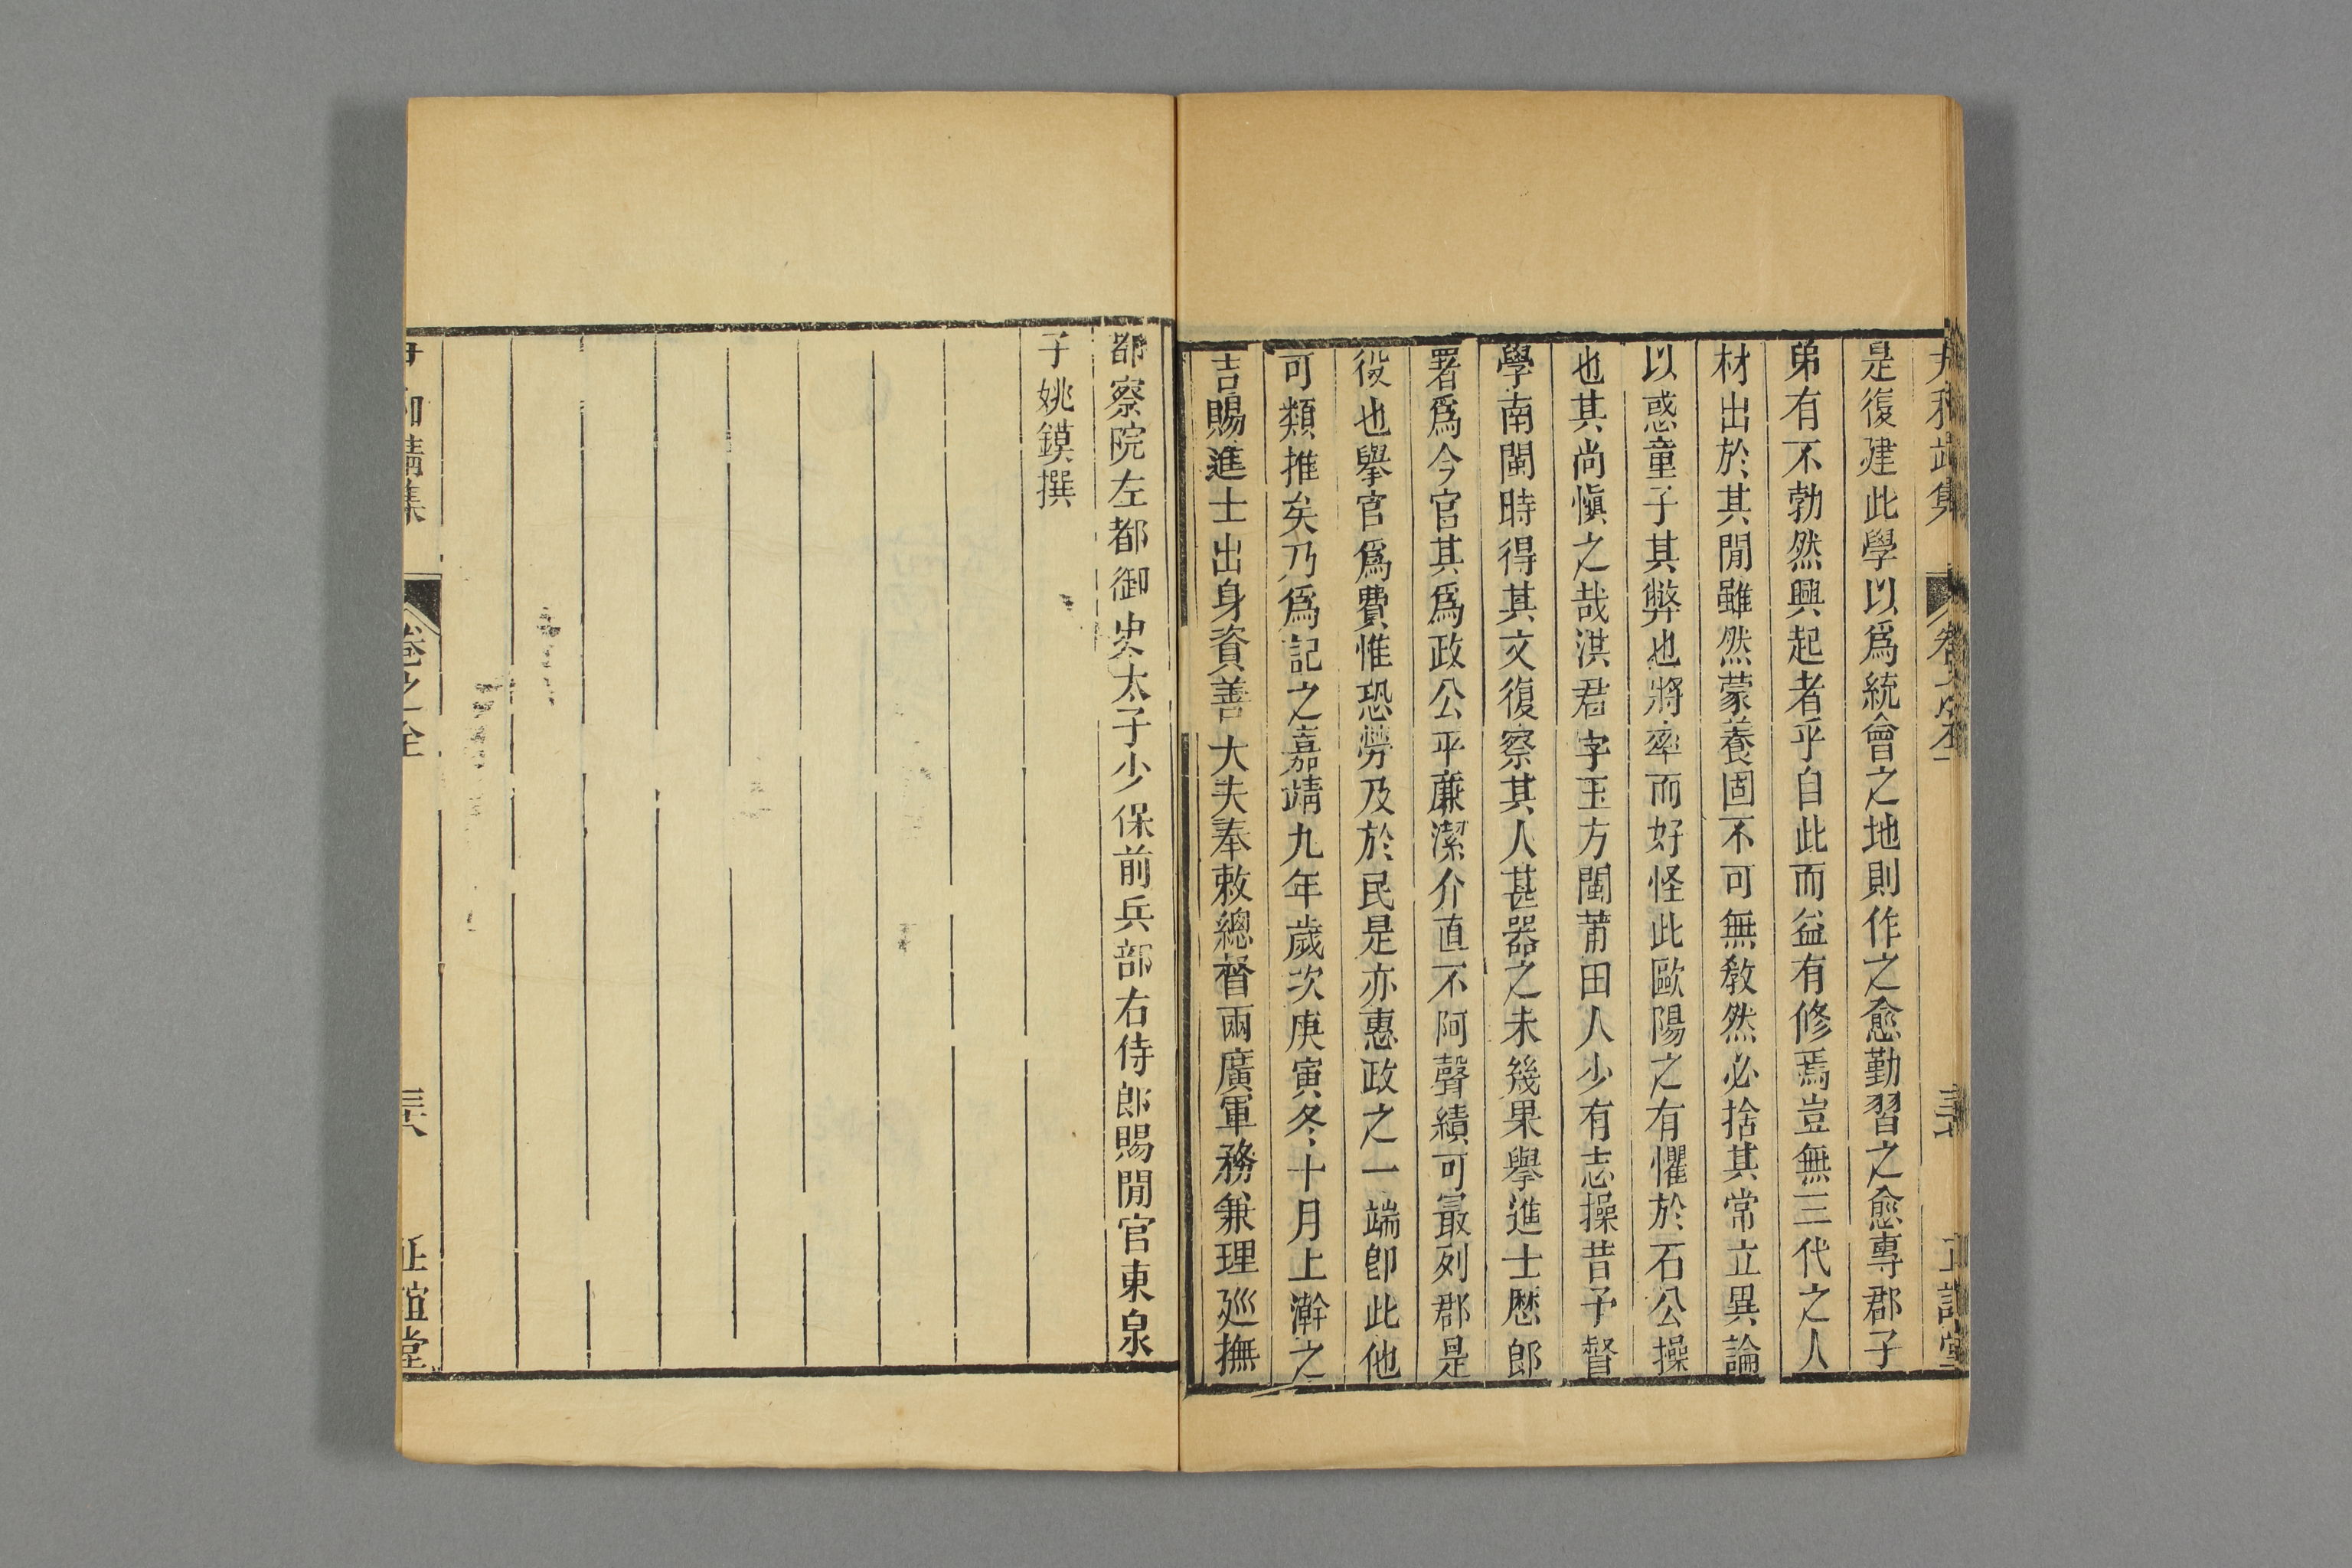 是復建此學以爲統會之地則作之愈勤習之愈專郡子
弟有不勃然興起者乎自此而益有修焉豈無三代之人
材出於其閒雖然蒙養固不可無敎然必捨其常立異論
以惑童子其弊也將率而好怪此歐陽之有懼於石公操
也其尚愼之哉淇君字玉方閩莆田人少有志操昔予督
學南閩時得其文復察其人甚器之未幾果舉進士歷郎
署爲今官其爲政公平廉潔介直不阿聲績可最列郡是
役也擧官爲費惟恐勞及於民是亦惠政之一端卽此他
可類推矣乃爲記之嘉靖九年歲次庚寅冬十月上澣之
吉賜進士出身資善大夫奉敕總督兩廣軍務兼理廵撫
都察院左都御史太子少保前兵部右侍郎賜閒官東泉
子姚鏌撰
尹和靖集
卷之全
三六
正誼堂